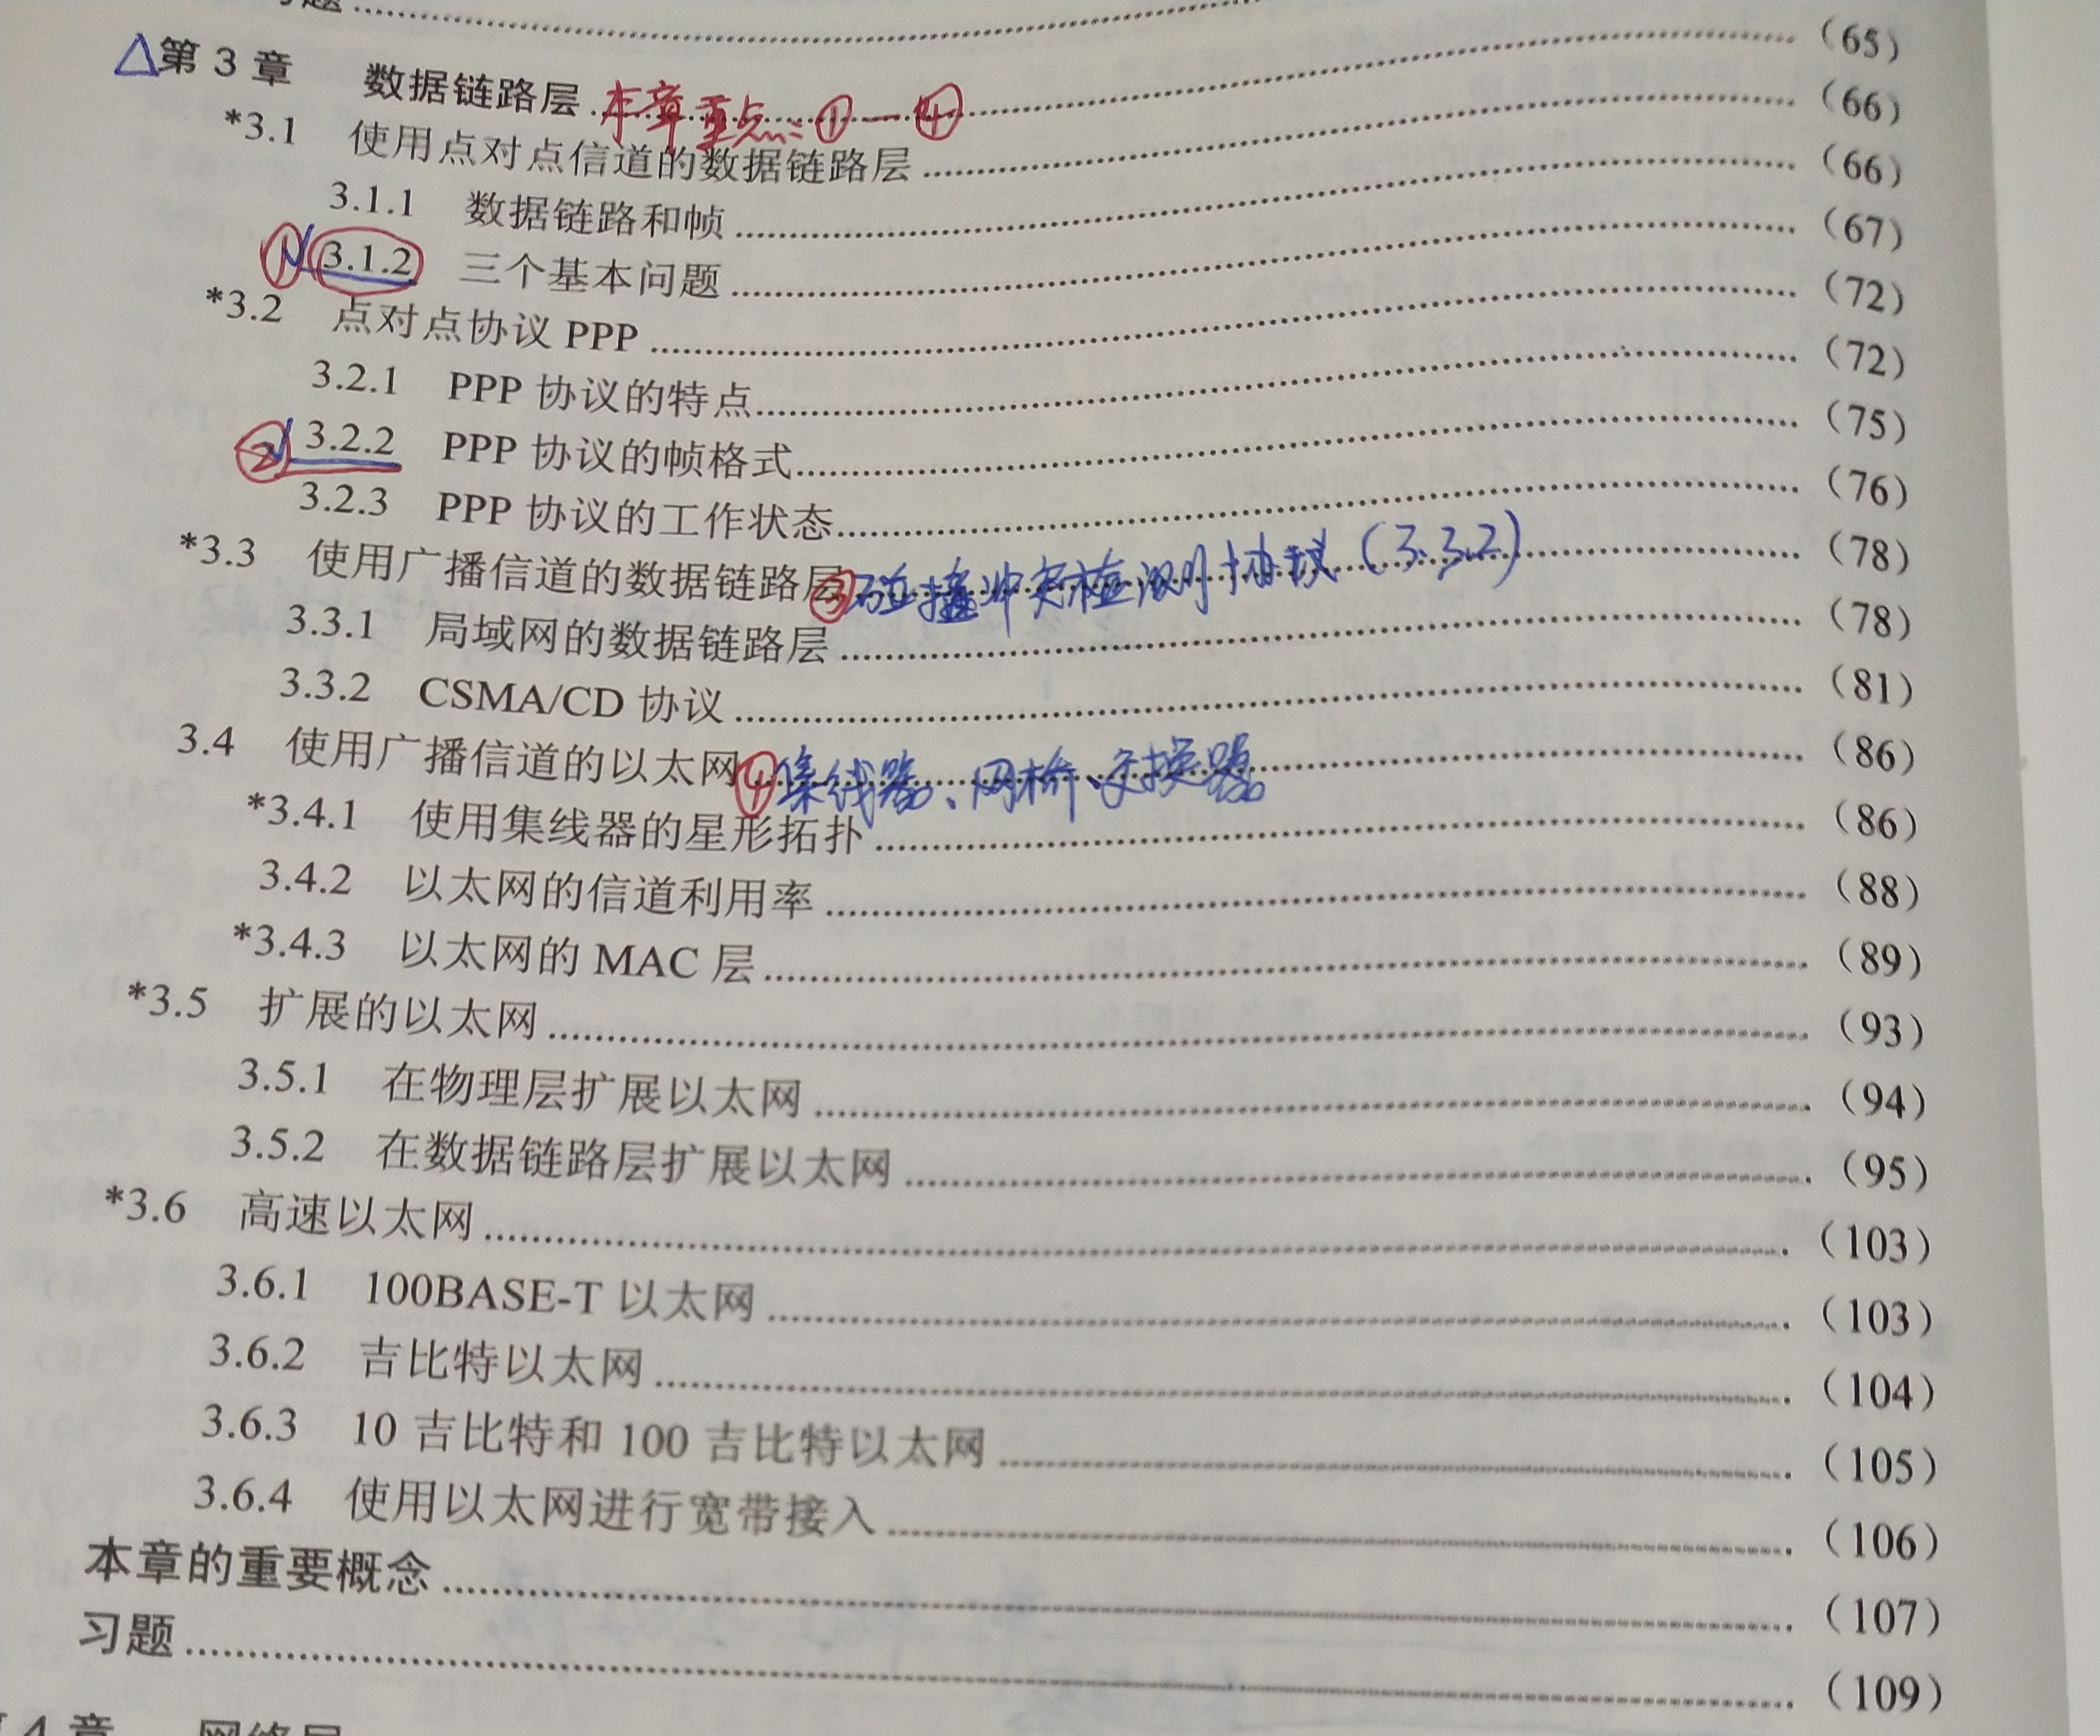 习题
△第 3 章 数据链路层 本章重点: ①—④ (65)
*3.1 使用点对点信道的数据链路层 (66)
3.1.1 数据链路和帧 (66)
① √ 3.1.2 三个基本问题 (67)
*3.2 点对点协议 PPP (72)
3.2.1 PPP 协议的特点 (72)
② √ 3.2.2 PPP 协议的帧格式 (75)
3.2.3 PPP 协议的工作状态 (76)
*3.3 使用广播信道的数据链路层 ③碰撞冲突检测协议(3.3.2) (78)
3.3.1 局域网的数据链路层 (78)
3.3.2 CSMA/CD 协议 (81)
3.4 使用广播信道的以太网 ④集线器、网桥、交换器 (86)
*3.4.1 使用集线器的星形拓扑 (86)
3.4.2 以太网的信道利用率 (88)
*3.4.3 以太网的 MAC 层 (89)
*3.5 扩展的以太网 (93)
3.5.1 在物理层扩展以太网 (94)
3.5.2 在数据链路层扩展以太网 (95)
*3.6 高速以太网 (103)
3.6.1 100BASE-T 以太网 (103)
3.6.2 吉比特以太网 (104)
3.6.3 10 吉比特和 100 吉比特以太网 (105)
3.6.4 使用以太网进行宽带接入 (106)
本章的重要概念 (107)
习题 (109)
第 4 章 网络层